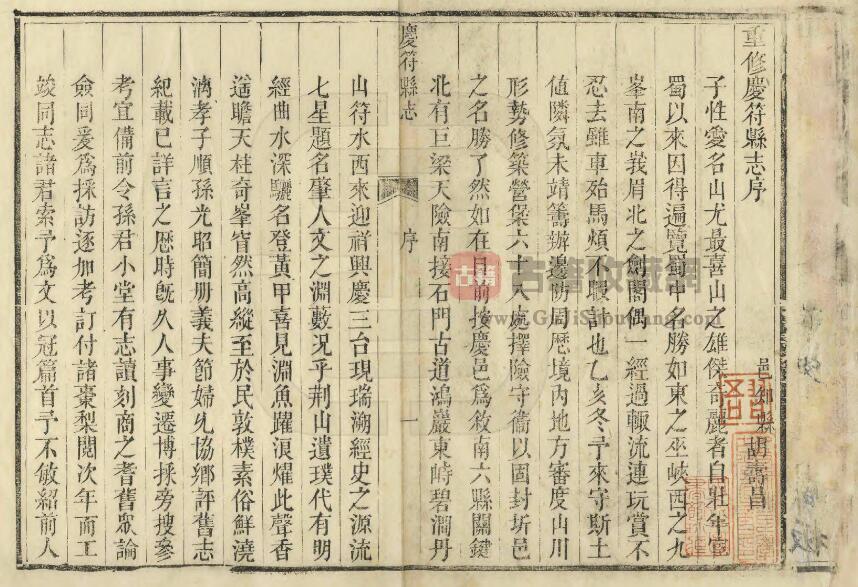 重修慶符縣志序
邑知縣胡壽昌
予性愛名山尤最喜山之雄傑奇麗者自壯年宦
蜀以來因得遍覽蜀中名勝如東之巫峽西之九
峯南之峩眉北之劍閣偶一經過輙流連玩賞不
忍去雖車殆馬煩不暇計也乙亥冬予來守斯土
值隣氛未靖籌辦邊防周歷境內地方審度山川
形勢修築營堡六十八處擇險守衛以固封圻邑
之名勝了然如在目前按慶邑爲敘南六縣關鍵
北有巨梁天險南接石門古道鴻巖東峙碧澗丹
慶符縣志
序
一
山符水西來迎祥興慶三台現瑞溯經史之源流
七星題名肇人文之淵藪况乎荆山遺璞代有明
經曲水深驪名登黃甲喜見淵魚躍浪燿此聲香
遥瞻天柱奇峯窅然高縱至於民敦樸素俗鮮澆
漓孝子順孫光昭簡册義夫節婦允協鄉評舊志
紀載已詳言之歷時旣久人事變遷博採旁搜參
考宜備前令孫君小堂有志讀刻商之耆舊眾論
僉同爰爲採訪逐加考訂付諸棗梨閱次年而工
竣同志諸君索予爲文以冠篇首予不敏紹前人
古籍收藏網
www.GuJiShouCang.com